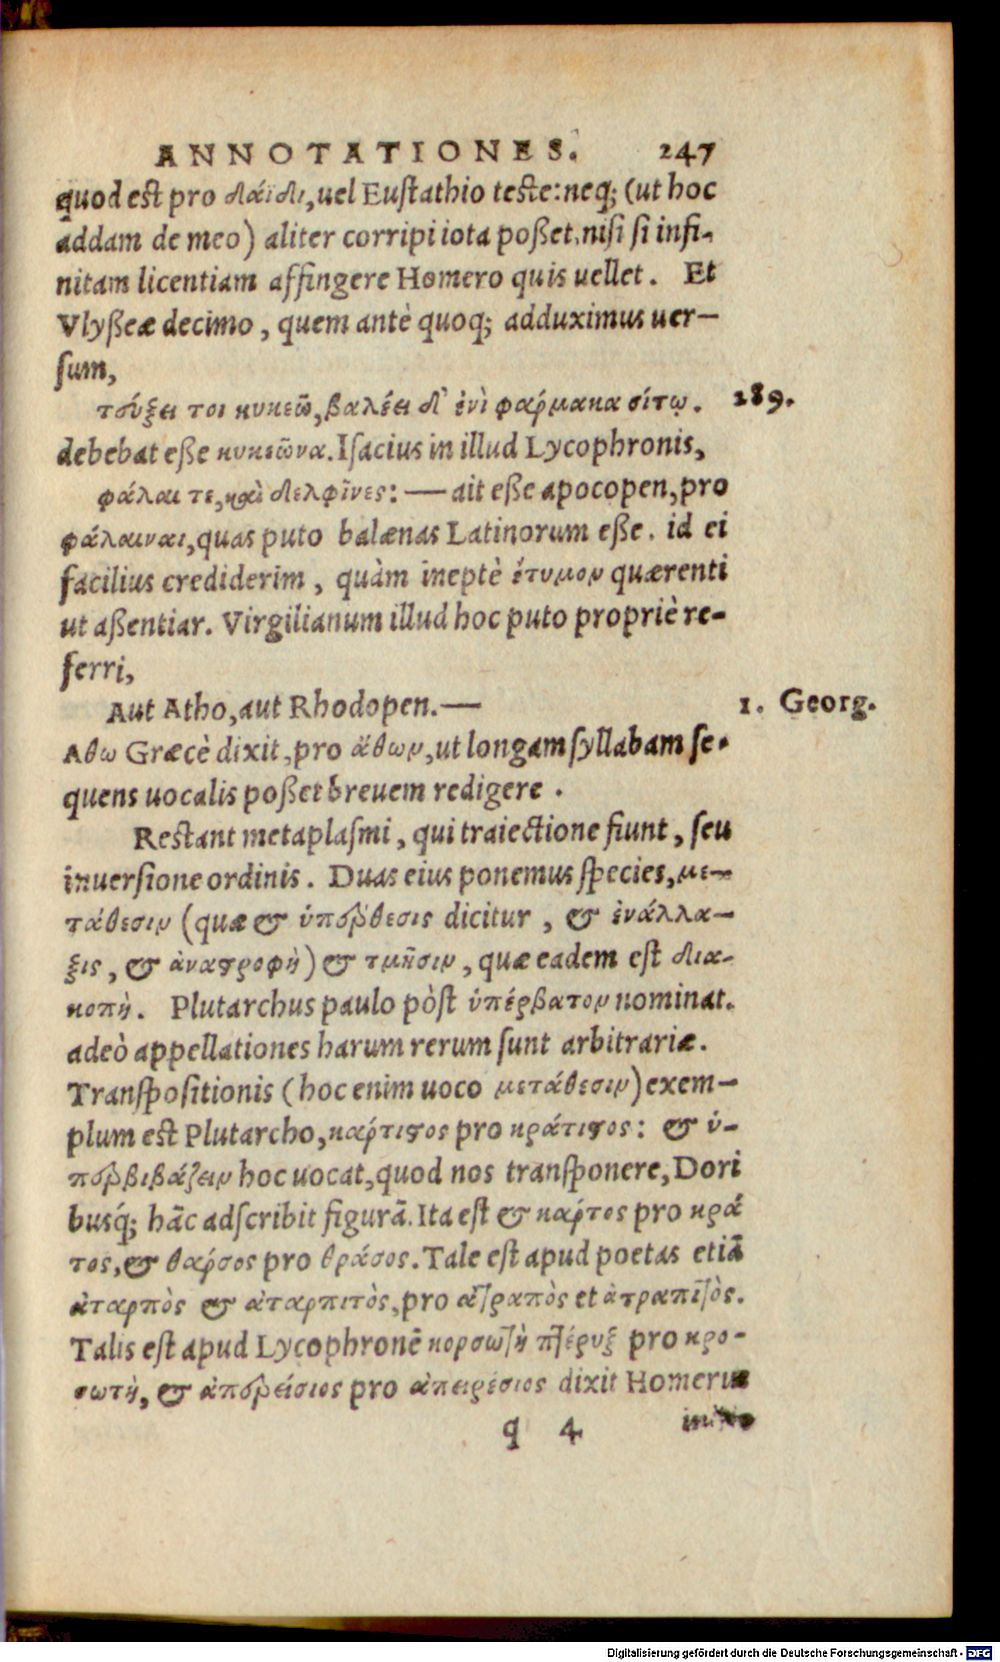 ANNOTATIONES. 247
quod est pro δάϊδι, uel Eustathio teste: neq; (ut hoc
addam de meo) aliter corripi iota poßet, nisi si infi-
nitam licentiam affingere Homero quis uellet. Et
Vlyßeæ decimo, quem antè quoq; adduximus uer-
sum,
τεύξει τοι κυκεῶ, βαλέει δ' ἐνὶ φάρμακα σίτῳ. 289.
debebat eße κυκεῶνα. Isacius in illud Lycophronis,
φάλαι τε, καὶ δελφῖνες: — ait eße apocopen, pro
φάλαιναι, quas puto balænas Latinorum eße. id ei
facilius crediderim, quàm ineptè ἔτυμον quærenti
ut aßentiar. Virgilianum illud hoc puto propriè re-
ferri,
Aut Atho, aut Rhodopen. — 1. Georg.
Αθω Græcè dixit, pro ἄθων, ut longam syllabam se-
quens uocalis poßet breuem redigere.
Restant metaplasmi, qui traiectione fiunt, seu
inuersione ordinis. Duas eius ponemus species, με-
τάθεσιν (quæ & ὑπέρθεσις dicitur, & ἐνάλλα-
ξις, & ἀναστροφὴ) & τμῆσιν, quæ eadem est δια-
κοπὴ. Plutarchus paulo pòst ὑπέρβατον nominat.
adeò appellationes harum rerum sunt arbitrariæ.
Transpositionis (hoc enim uoco μετάθεσιν) exem-
plum est Plutarcho, κάρτιστος pro κράτιστος: & ὑ-
περβιβάζειν hoc uocat, quod nos transponere, Dori
busq́; hāc adscribit figurā. Ita est & κάρτος pro κρά
τος, & θάρσος pro θράσος. Tale est apud poetas etiā
ἀταρπὸς & ἀταρπιτὸς, pro ἀτραπὸς et ἀτραπιτὸς.
Talis est apud Lycophronē κορσωτὴ πτέρυξ pro κρο-
σωτὴ, & ἀπερείσιος pro ἀπειρέσιος dixit Homerus
q 4
Digitalisierung gefördert durch die Deutsche Forschungsgemeinschaft - DFG